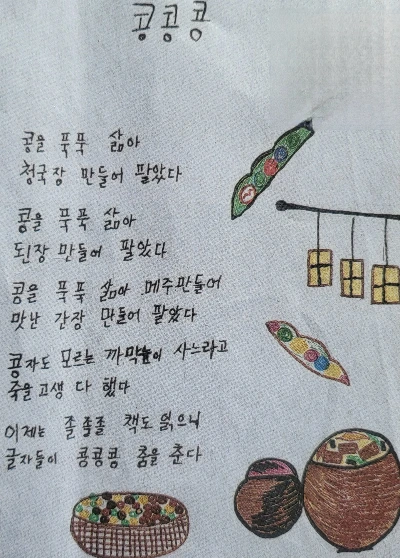 콩콩콩
콩을 푹푹 삶아
청국장 만들어 팔았다
콩을 푹푹 삶아
된장 만들어 팔았다
콩을 푹푹 삶아 메주만들어
맛난 간장 만들어 팔았다
콩자도 모르는 까막눈이 사느라고
죽을고생 다 했다
이제는 졸졸졸 책도 읽으니
글자들이 콩콩콩 춤을 춘다